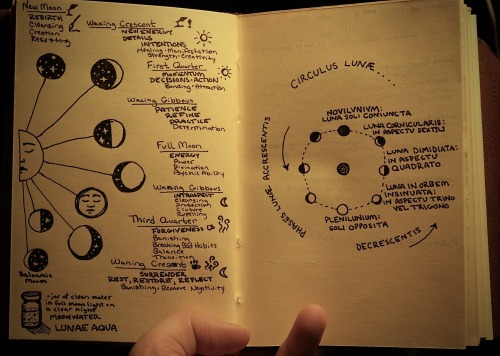 New Moon
REBIRTH
Cleansing
Creation
Resetting
Waxing Crescent
NEW ENERGY
DETAILS
INTENTIONS
Healing · Manifestation
Strength · Creativity
First Quarter
MOMENTUM
DECISIONS · ACTION
Bonding · Attraction
Waxing Gibbous
PATIENCE
REFINE
PRACTICE
Determination
Full Moon
ENERGY
Power
Divination
Psychic Ability
Waning Gibbous
INTROSPECT
Cleansing
Protection
Closure
Repelling
Third Quarter
FORGIVENESS
Banishing
Breaking Bad Habits
Balance
Transition
Waning Crescent
SURRENDER
REST, RESTORE, REFLECT
Banishing · Remove Negitivity
Balsamic
Moon
· jar of clean water
in full moon light on
a clear night
MOONWATER
LUNAE AQUA
CIRCULUS LUNÆ.....
NOVILVNIVM:
LUNA SOLI CONIUNCTA
LUNA CORNICULARIS:
IN ASPECTU SEXTILI
LUNA DIMIDIATA:
IN ASPECTU
QUADRATO
LUNA IN ORBEM
INSINUATA:
IN ASPECTU TRINO
VEL TRIGONO
PLENILUNIUM:
SOLI OPPOSITA
PHASES LUNÆ ACCRESCENTIS
DECRESCENTIS